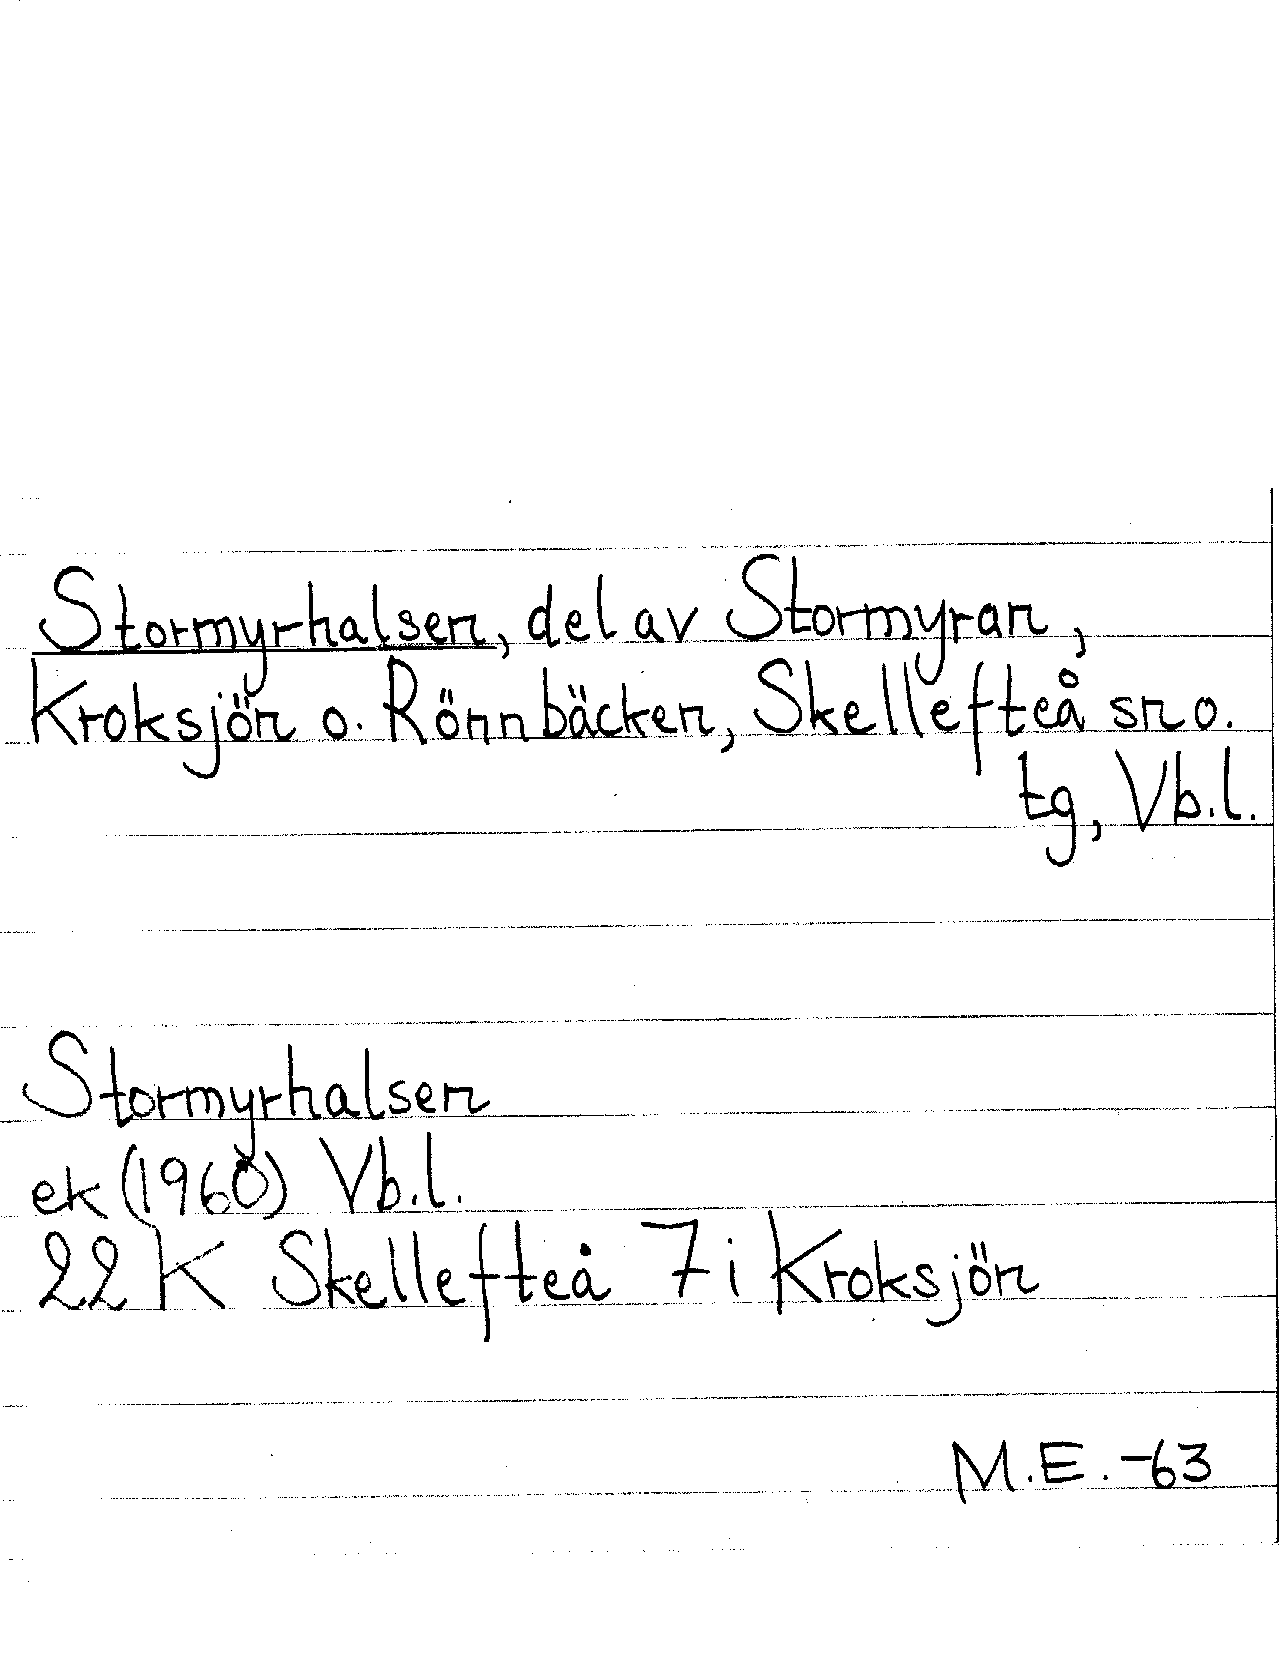 Stormyrhalsen, del av Stormyran,
Kroksjön o. Rönnbäcken, Skellefteå sn o.
tg, Vb.l.
Stormyrhalsen
ek (1960) Vb.l.
22 K Skellefteå 7 i Kroksjön
M.E. -63